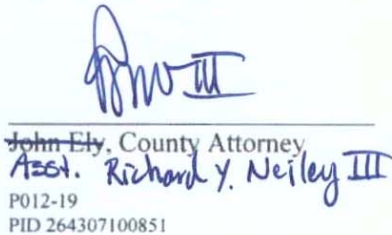 John Ely, County Attorney
Asst. Richard Y. Neiley III
P012-19
PID 264307100851